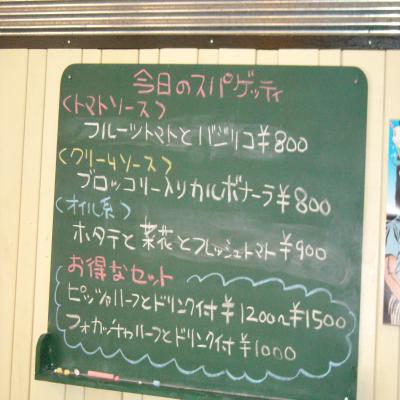 今日のスパゲッティ
(トマトソース)
フルーツトマトとバジリコ¥800
(クリームソース)
ブロッコリー入りカルボナーラ¥800
(オイル系)
ホタテと菜花とフレッシュトマト¥900
お得なセット
ピッツァハーフとドリンク付¥1200~¥1500
フォカッチャハーフとドリンク付¥1000